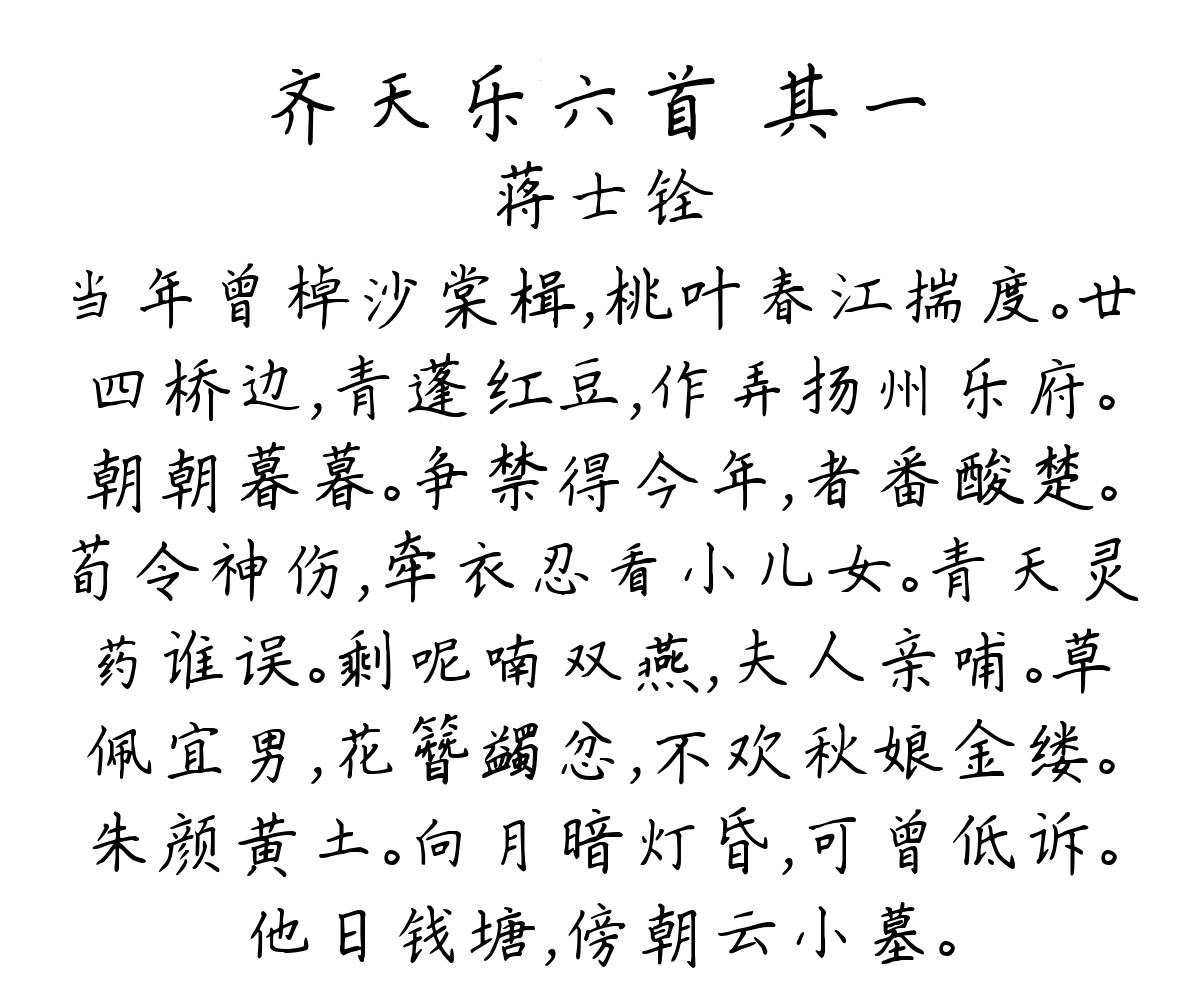 齐天乐六首 其一
蒋士铨
当年曾棹沙棠楫,桃叶春江揣度。廿
四桥边,青蓬红豆,作弄扬州乐府。
朝朝暮暮。争禁得今年,者番酸楚。
荀令神伤,牵衣忍看小儿女。青天灵
药谁误。剩呢喃双燕,夫人亲哺。草
佩宜男,花簪蠲忿,不欢秋娘金缕。
朱颜黄土。向月暗灯昏,可曾低诉。
他日钱塘,傍朝云小墓。